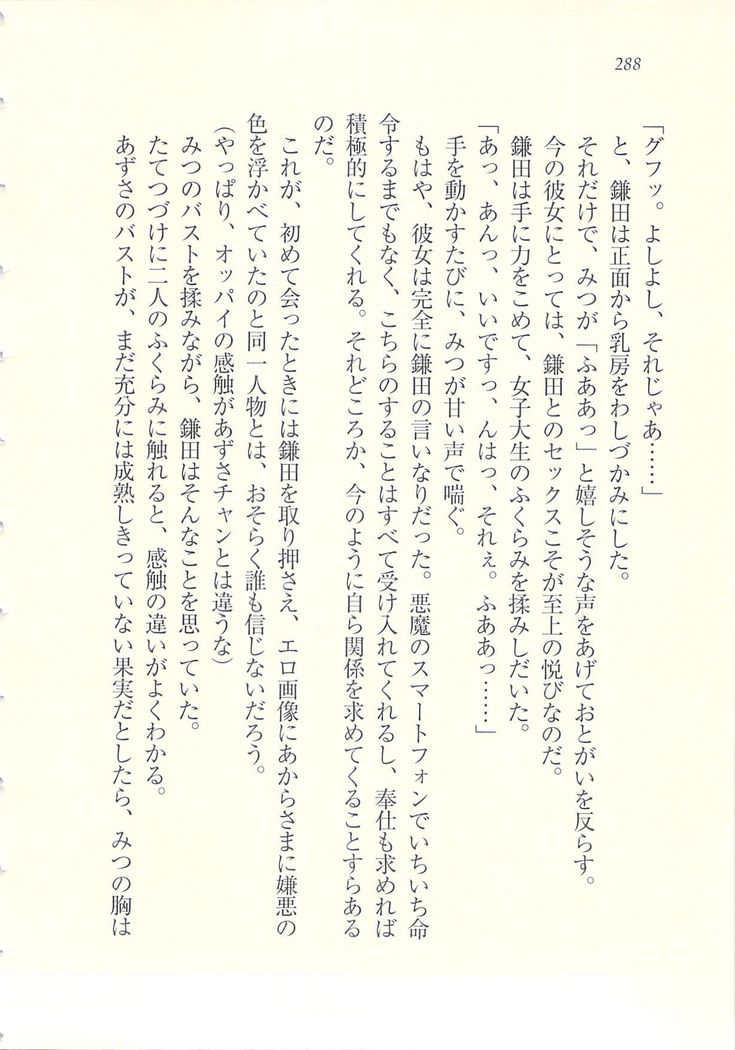 288
「グフッ。よしよし、それじゃあ……」
と、鎌田は正面から乳房をわしづかみにした。
それだけで、みつが「ふああっ」と嬉しそうな声をあげておとがいを反らす。
今の彼女にとっては、鎌田とのセックスこそが至上の悦びなのだ。
鎌田は手に力をこめて、女子大生のふくらみを揉みしだいた。
「あっ、あんっ、いいですっ、んはっ、それぇ。ふああっ……」
手を動かすたびに、みつが甘い声で喘ぐ。
もはや、彼女は完全に鎌田の言いなりだった。悪魔のスマートフォンでいちいち命
令するまでもなく、こちらのすることはすべて受け入れてくれるし、奉仕も求めれば
積極的にしてくれる。それどころか、今のように自ら関係を求めてくることすらある
のだ。
これが、初めて会ったときには鎌田を取り押さえ、エロ画像にあからさまに嫌悪の
色を浮かべていたのと同一人物とは、おそらく誰も信じないだろう。
(やっぱり、オッパイの感触があずさチャンとは違うな)
みつのバストを揉みながら、鎌田はそんなことを思っていた。
たてつづけに二人のふくらみに触れると、感触の違いがよくわかる。
あずさのバストが、まだ充分には成熟しきっていない果実だとしたら、みつの胸は